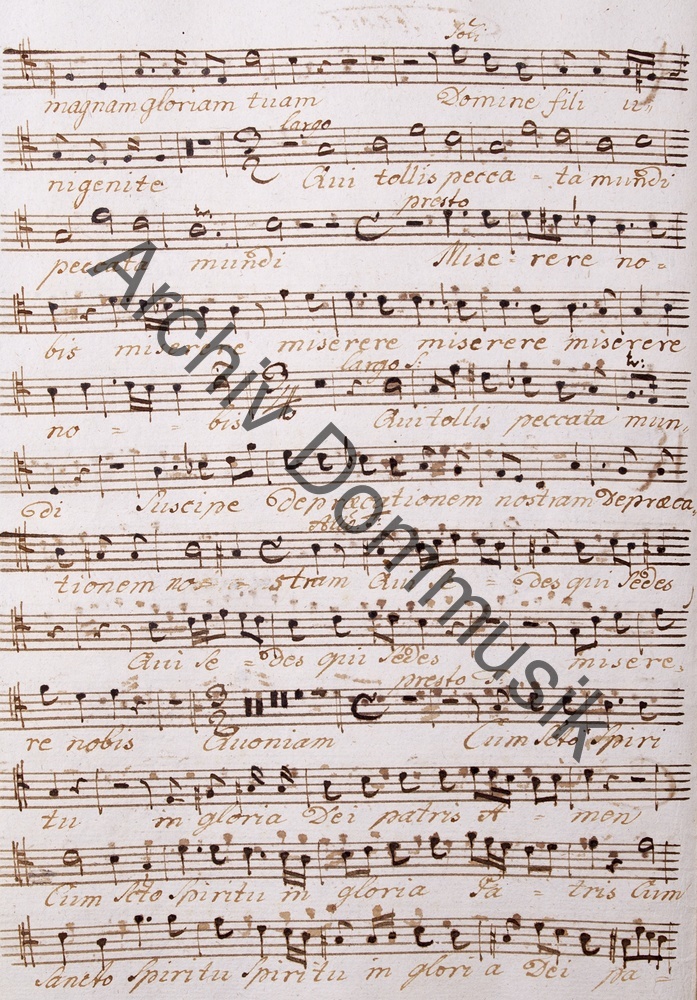 Soli
magnam gloriam tuam Domine fili u-
largo
nigenite Qui tollis pecca = ta mundi
presto
peccata mundi Mise: rere no=
bis miserere miserere miserere miserere miserere
largo S:
no = = bis Qui tollis peccata mun,
di Suscipe depræcationem nostram Depræca,
Allo
tionem no = = stram Qui = des qui sedes
Qui se = des qui sedes misere,
presto S:
re nobis Quoniam Cum Scto Spiri
tu in gloria Dei patris A = men
Cum Scto Spiritu in gloria Pa = tris Cum
Sancto Spiritu Spiritu in glori a Dei pa =
Archiv Dommusik